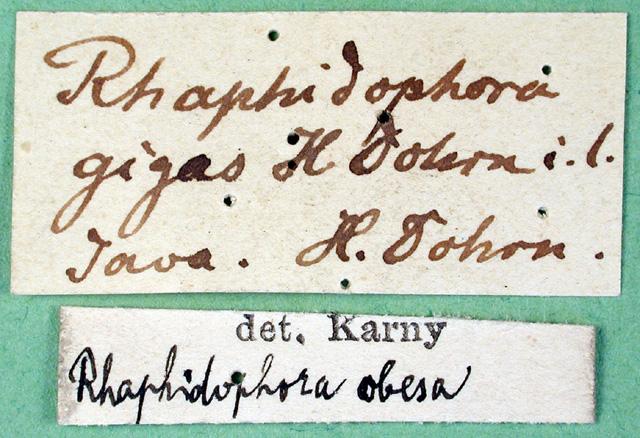 Rhaphidophora
gigas H Dohrn i. l.
Java. H. Dohrn.
det. Karny
Rhaphidophora obesa